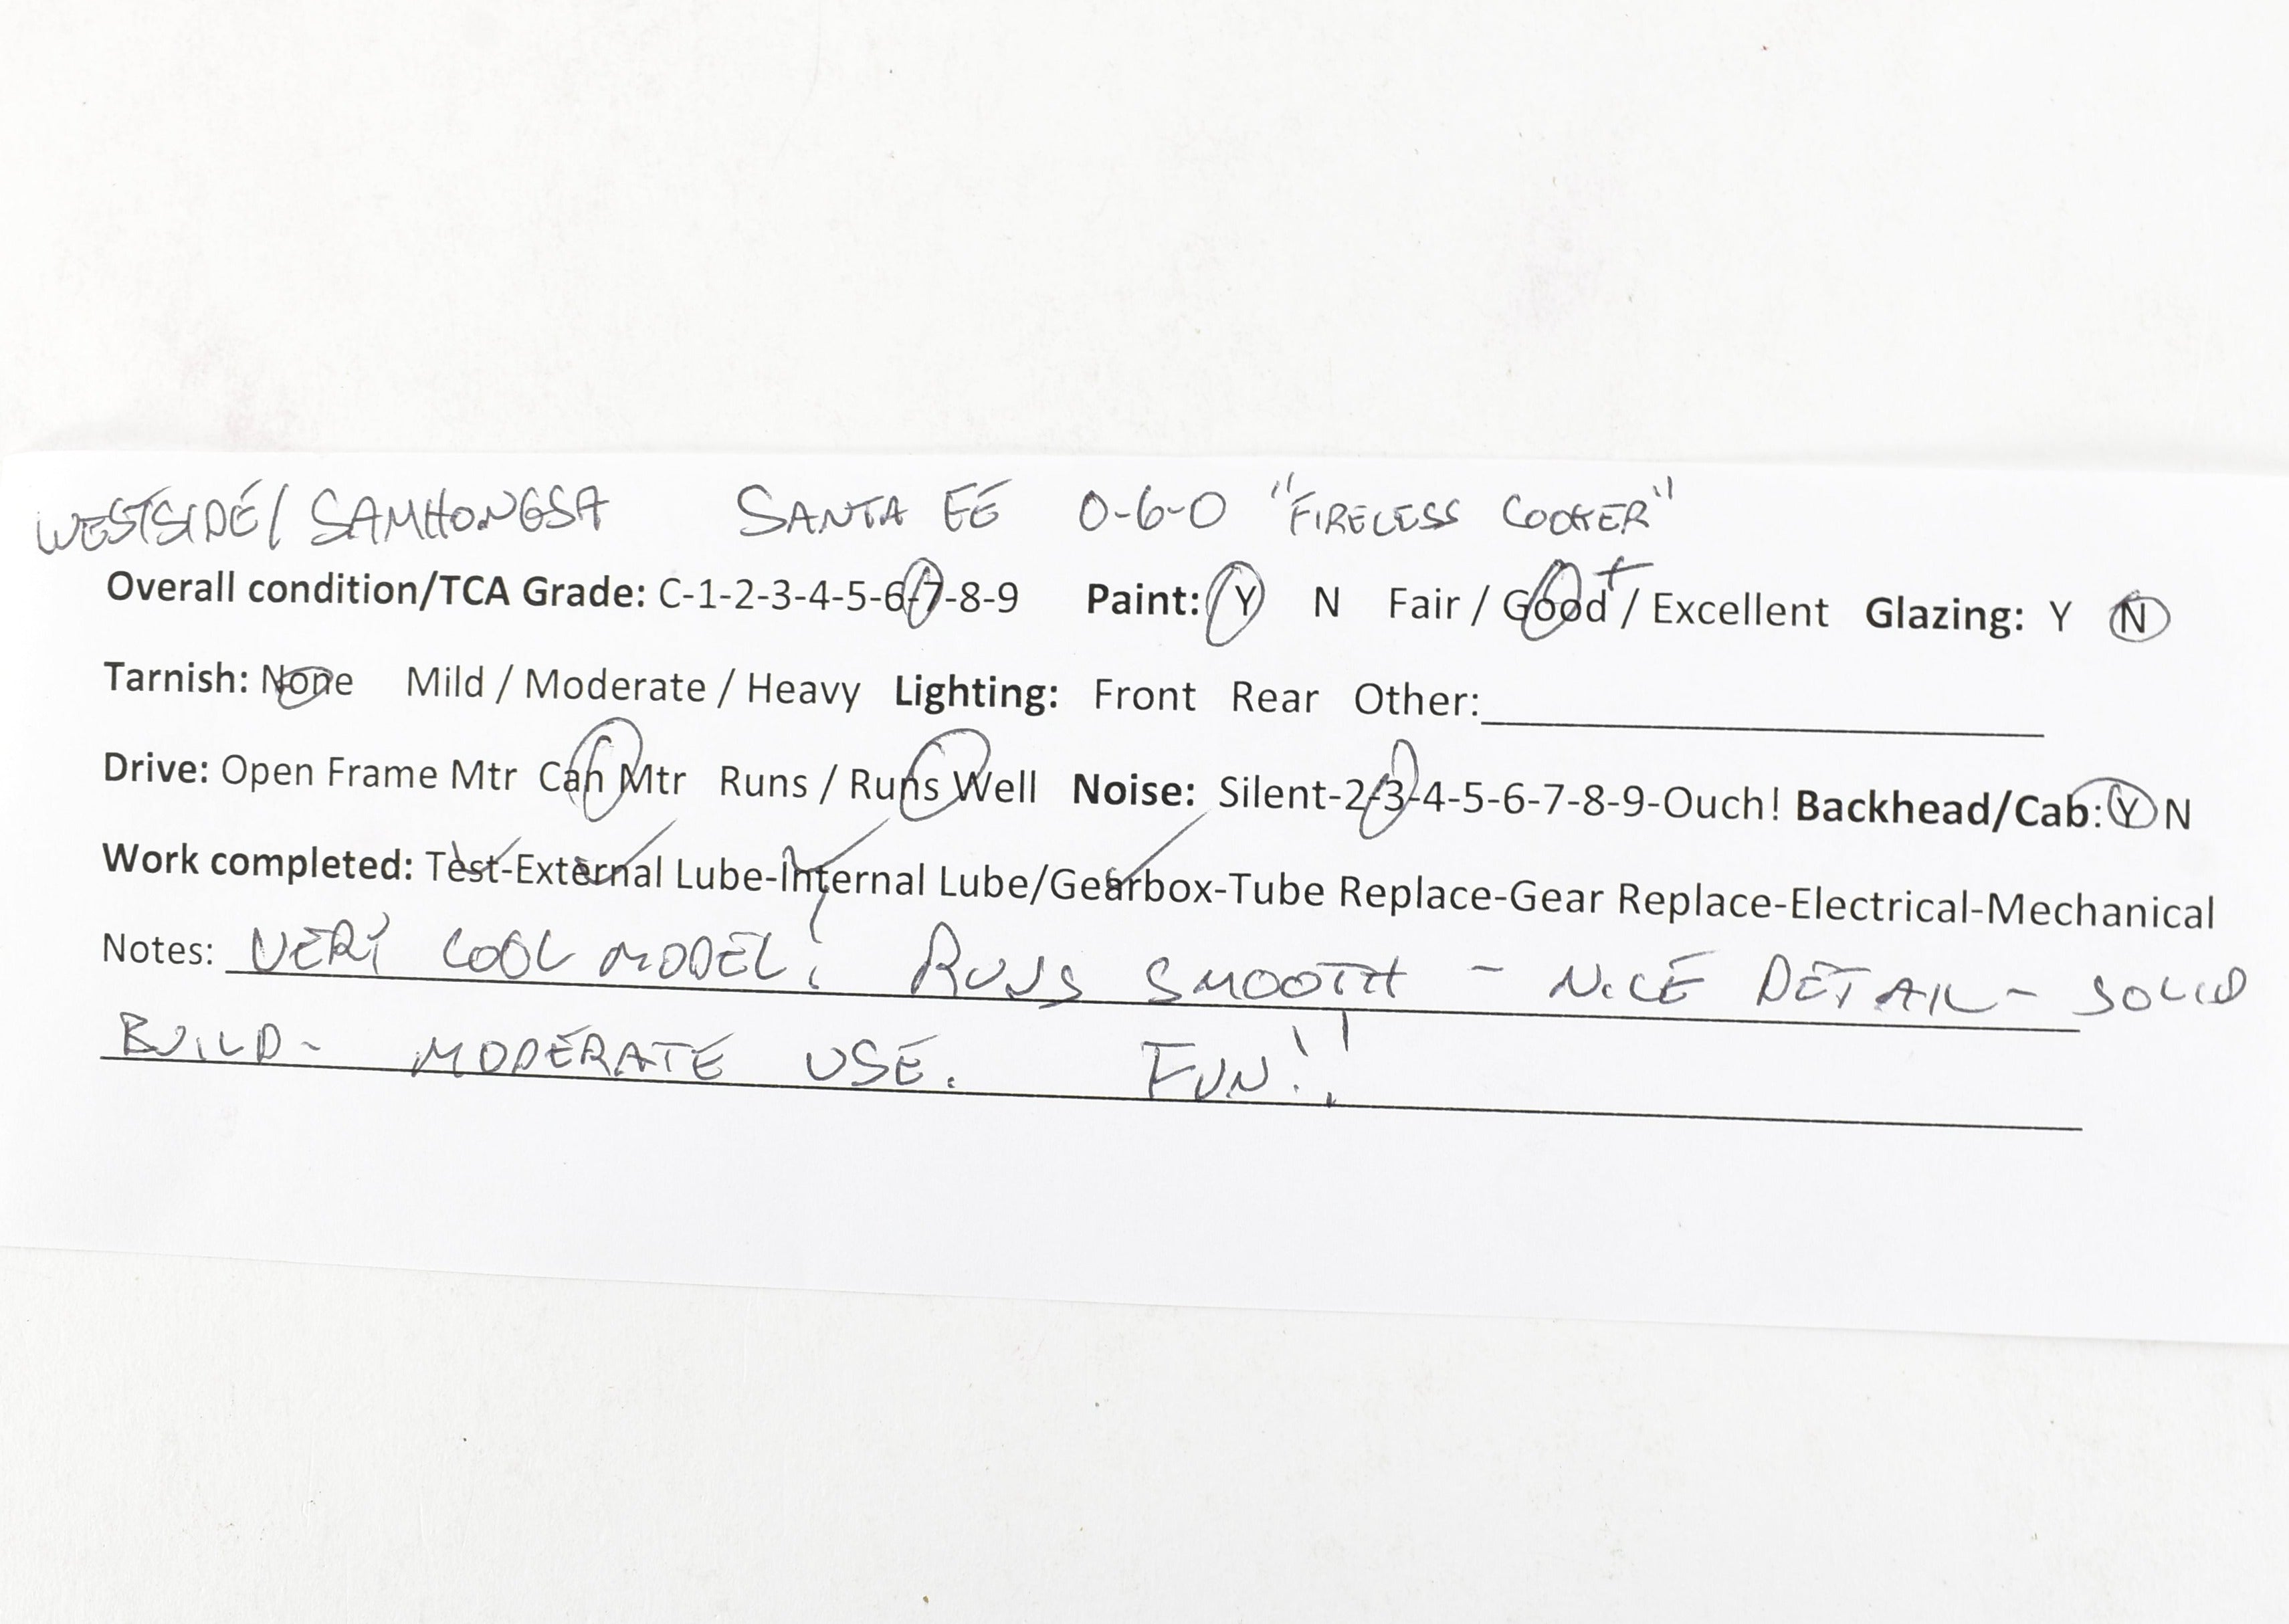 WESTSIDE/SAMHONGSA SANTA FE 0-6-0 "FIRELESS COOKER"
Overall condition/TCA Grade: C-1-2-3-4-5-6-7-8-9 Paint: Y N Fair / Good+ / Excellent Glazing: Y N
Tarnish: None Mild / Moderate / Heavy Lighting: Front Rear Other:
Drive: Open Frame Mtr Can Mtr Runs / Runs Well Noise: Silent-2-3-4-5-6-7-8-9-Ouch! Backhead/Cab: Y N
Work completed: Test-External Lube-Internal Lube/Gearbox-Tube Replace-Gear Replace-Electrical-Mechanical
Notes: VERY COOL MODEL! RUNS SMOOTH - NICE DETAIL - SOLID
BUILD - MODERATE USE. FUN!!